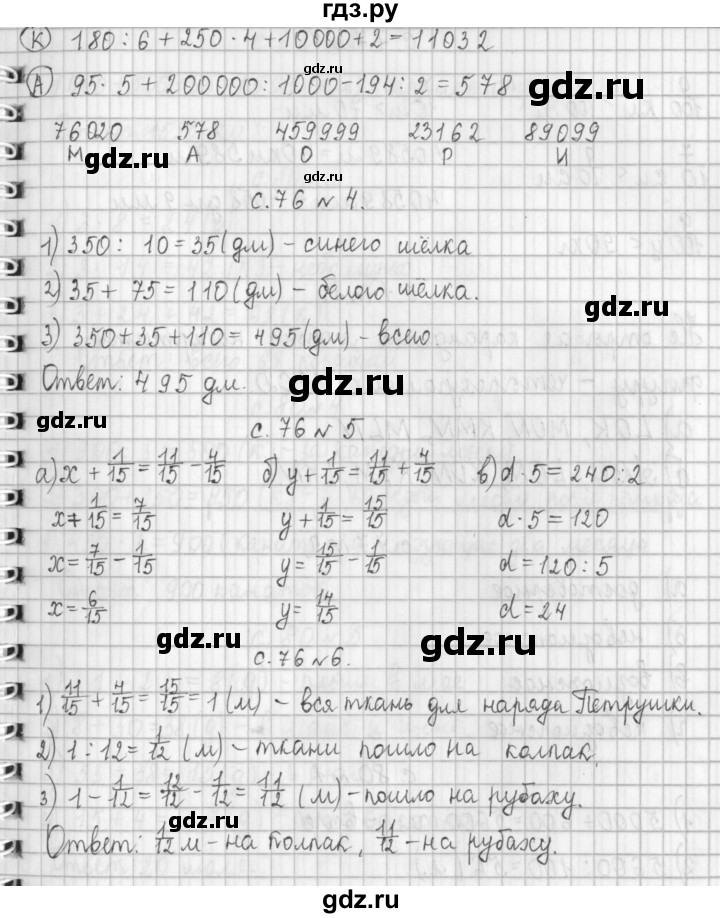 гдз.ру
К) 180 : 6 + 250 · 4 + 10000 + 2 = 11032
gdz.ru
А) 95 · 5 + 200000 : 1000 - 194 : 2 = 578 gdz.ru
76020 578 459999 23162 89099
М А О Р И
gdz.ru gdz.ru
с. 76 № 4.
1) 350 : 10 = 35 (дм) - синего шёлка
2) 35 + 75 = 110 (дм) - белого шёлка.
gdz.ru
3) 350 + 35 + 110 = 495 (дм) - всего
Ответ: 495 дм. gdz.ru
с. 76 № 5
а) x + 1/15 = 11/15 - 4/15 б) y + 1/15 = 11/15 + 4/15 в) d · 5 = 240 : 2
x + 1/15 = 7/15 y + 1/15 = 15/15 d · 5 = 120
x = 7/15 - 1/15 y = 15/15 - 1/15 d = 120 : 5
x = 6/15 y = 14/15 d = 24
gdz.ru gdz.ru
с. 76 № 6.
1) 11/15 + 4/15 = 15/15 = 1 (м) - вся ткань для наряда Петрушки.
gdz.ru
2) 1 : 12 = 1/12 (м) - ткани пошло на колпак.
3) 1 - 1/12 = 12/12 - 1/12 = 11/12 (м) - пошло на рубаху.
gdz.ru gdz.ru
Ответ: 1/12 м - на колпак, 11/12 - на рубаху.
gdz.ru